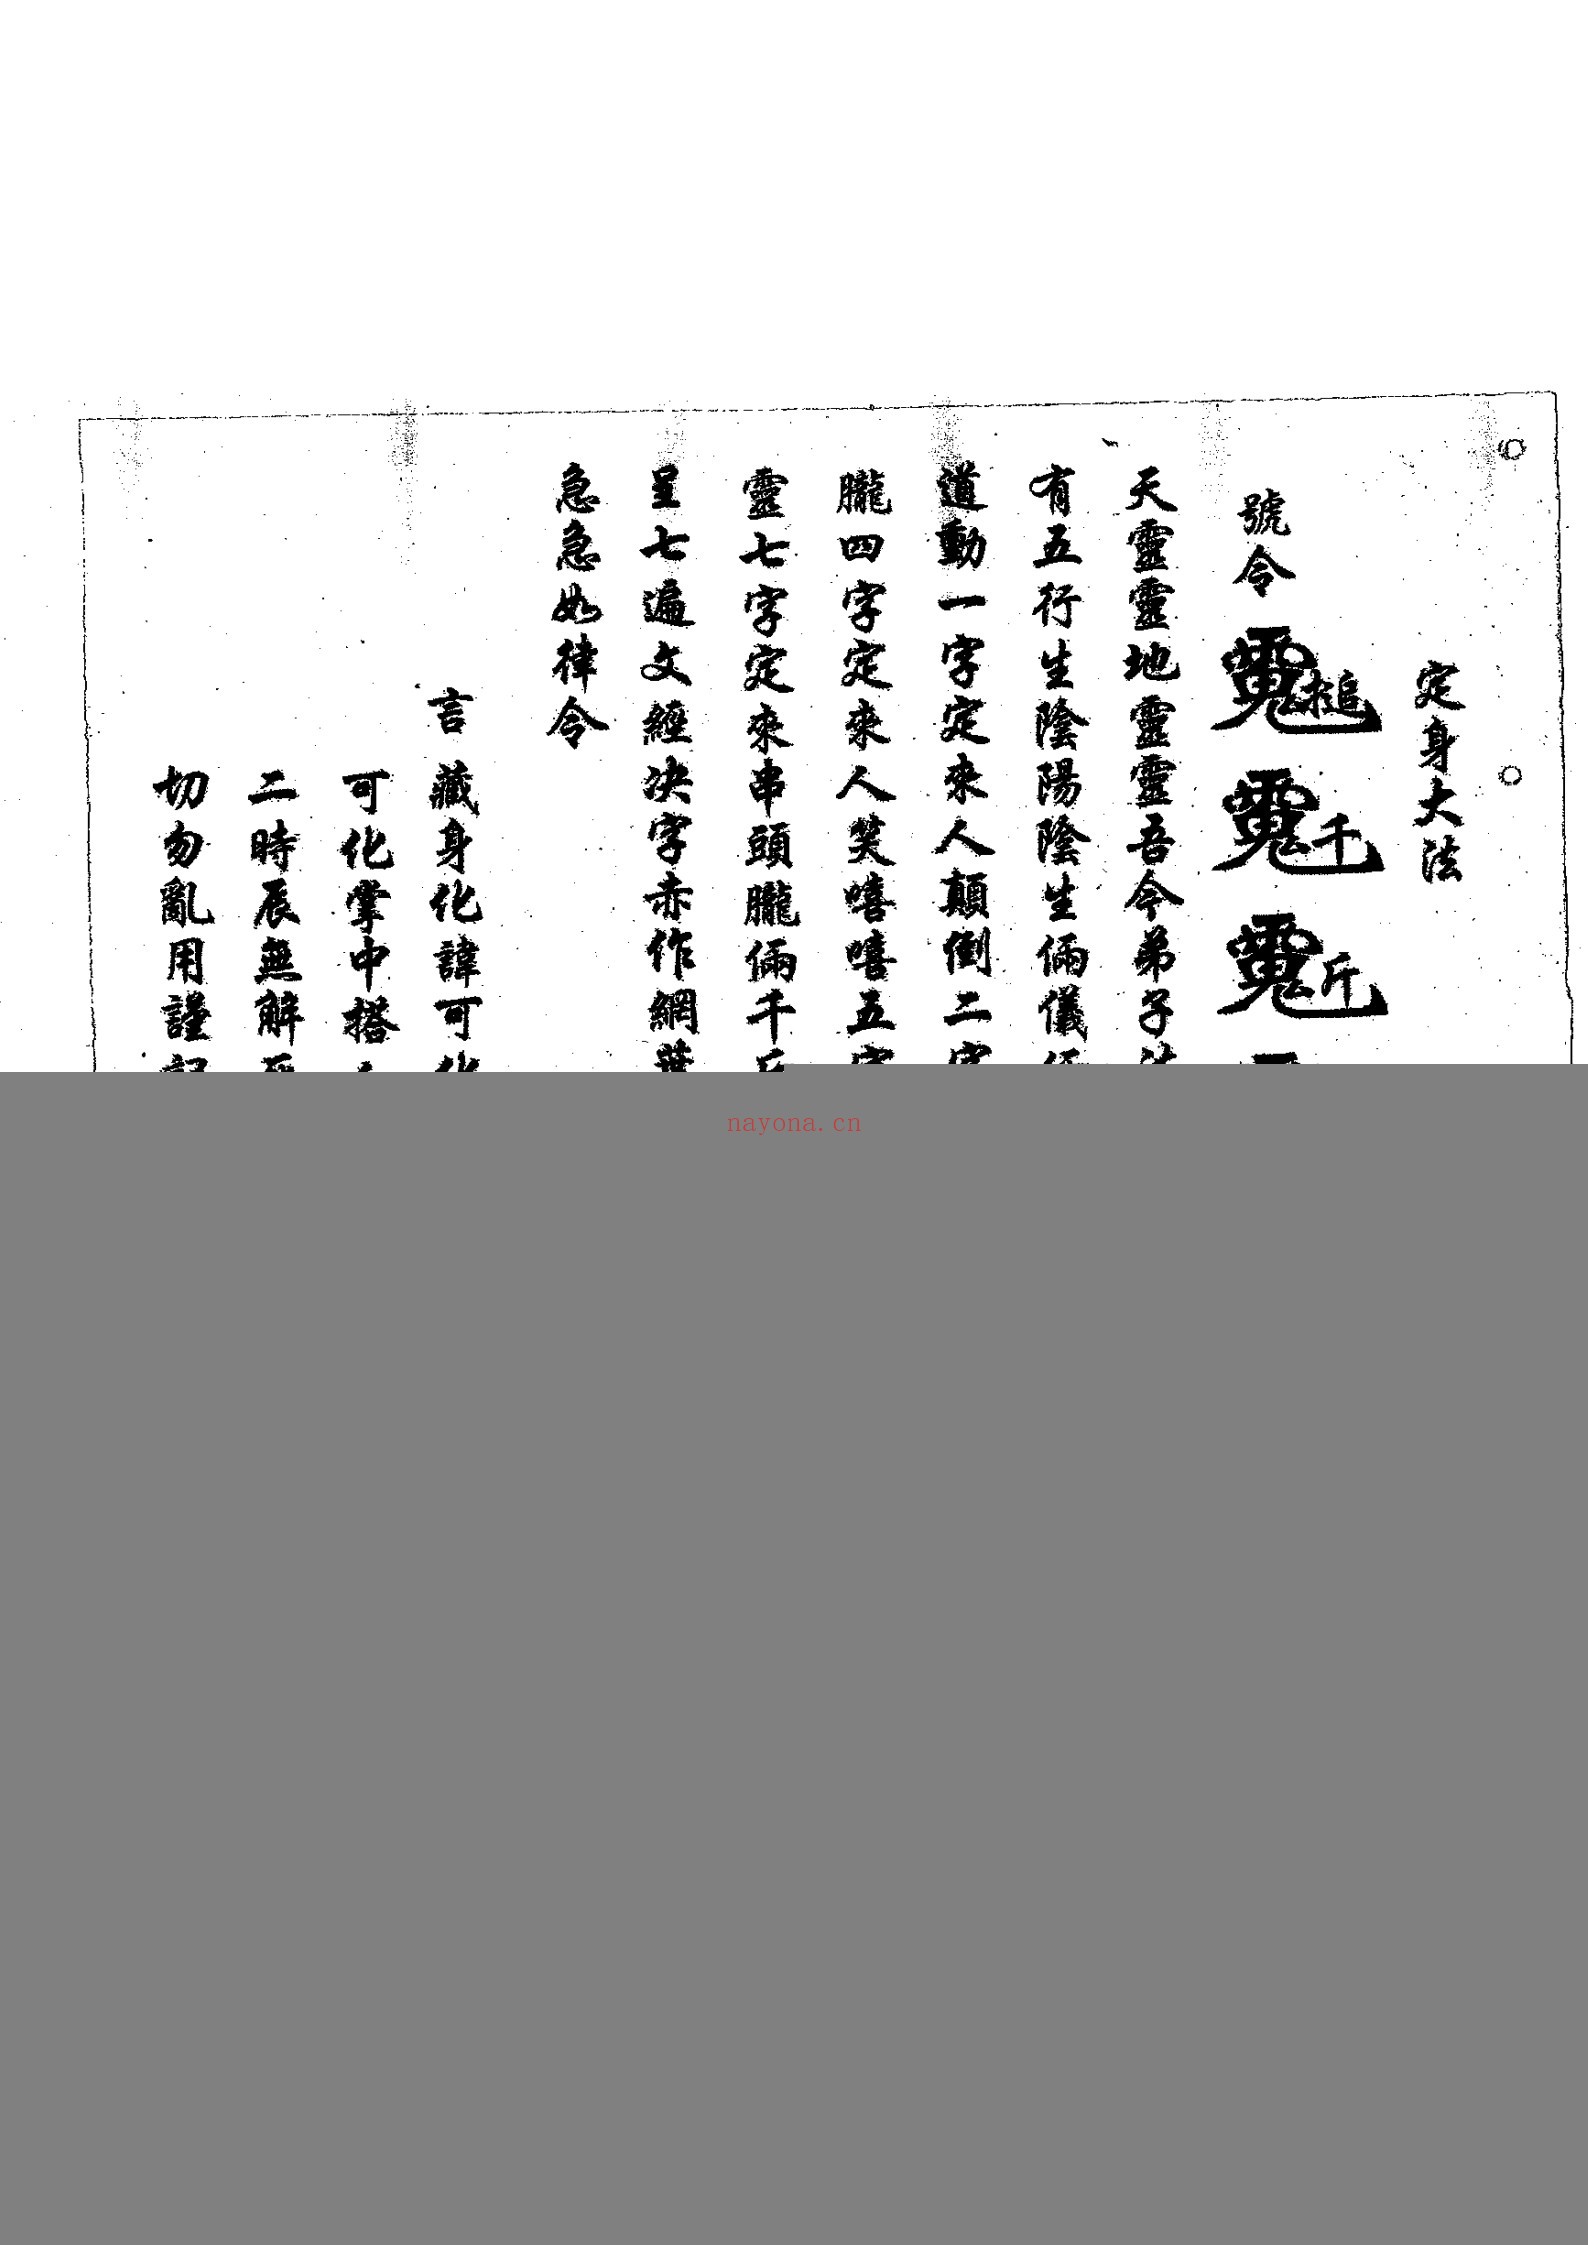 定身大法
號令
搥
千
斤
天靈靈地靈靈吾令弟子法
有五行生陰陽陰生倆儀
道動一字定來人顛倒二字
朧四字定來人笑嘻嘻五字
靈七字定來串頭朧倆千斤
呈七遍文經決字赤作網
急急如律令
言藏身化諱可化
可化掌中搭
二時辰無解
切勿亂用謹記
nayona.cn